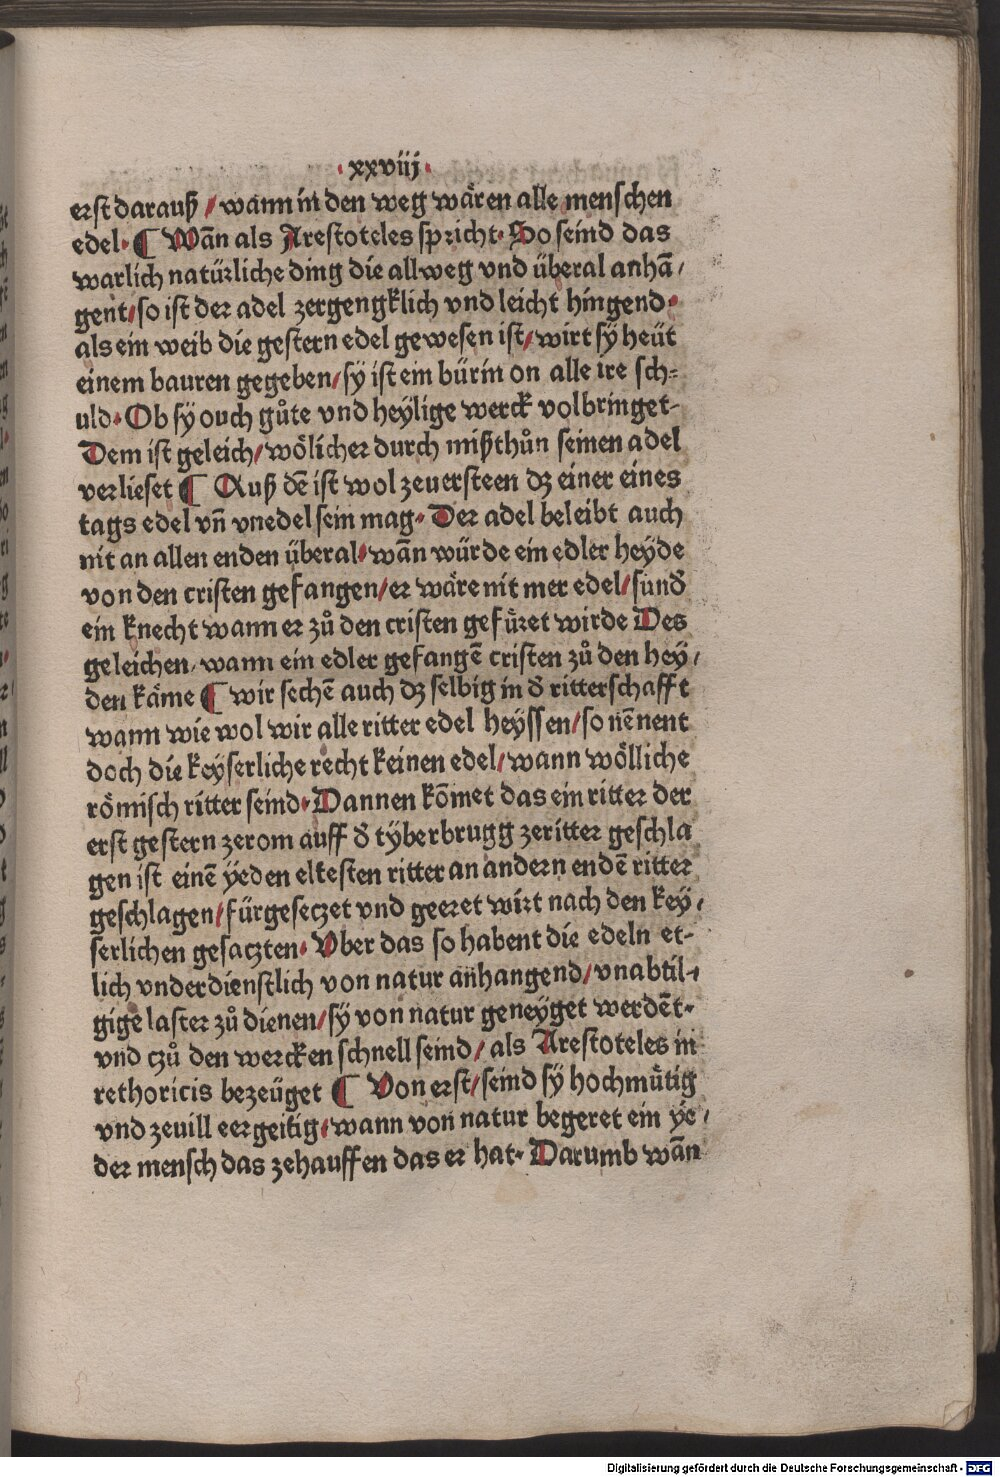 ·xxviij·
erst darauß / wann in den weg wären alle menschen
edel· ¶ Wān als Arestoteles spricht· So seind das
warlich natürliche ding die allweg vnd überal anhā/
gent/ so ist der adel zergengklich vnd leicht hingend·
als ein weib die gestern edel gewesen ist/ wirt sÿ heüt
einem bauren gegeben/ sÿ ist ein bürin on alle ire sch⸗
uld· Ob sÿ ouch gůte vnd heylige werck volbringet·
Dem ist geleich/ wölicher durch mißthůn seinen adel
verlieset ¶ Auß dē ist wol zeuersteen dz einer eines
tags edel vn̄ vnedel sein mag· Der adel beleibt auch
nit an allen enden überal· wān würde ein edler heyde
von den cristen gefangen/ er wäre nit mer edel/ sund̄
ein knecht wann er zů den cristen gefüret wirde Des
geleichen/ wann ein edler gefangē cristen zů den hey/
den käme ¶ wir sechē auch dz selbig in d̄ ritterschafft
wann wie wol wir alle ritter edel heyssen/ so nēnent
doch die keyserliche recht keinen edel/ wann wölliche
römisch ritter seind· Dannen kōmet das ein ritter der
erst gestern zerom auff d̄ tÿberbrugg zeritter geschla
gen ist einē yeden eltesten ritter an andern endē ritter
geschlagen/ fürgeseczet vnd geeret wirt nach den key/
serlichen gesaczten· Vber das so habent die edeln et⸗
lich vnderdienstlich von natur anhangend/ vnabtil⸗
gige laster zů dienen/ sÿ von natur geneyget werdēt·
vnd czů den wercken schnell seind/ als Arestoteles in
rethoricis bezeüget ¶ Von erst/ seind sÿ hochmütig
vnd zeuill eergeitig/ wann von natur begeret ein ye/
der mensch das zehauffen das er hat· Darumb wān
Digitalisierung gefördert durch die Deutsche Forschungsgemeinschaft - DFG